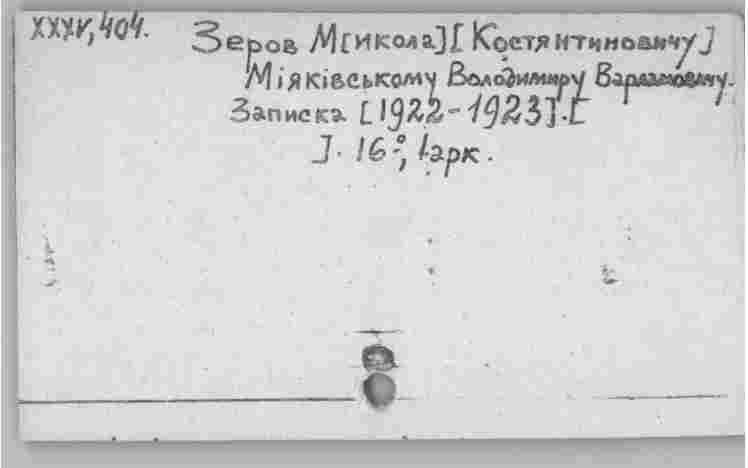 XXXV, 404.
Зеров М[икола] [Костянтиновичу]
Міяківському Володимиру Варламовичу.
Записка [1922-1923]. [
]. 16°, 1арк.